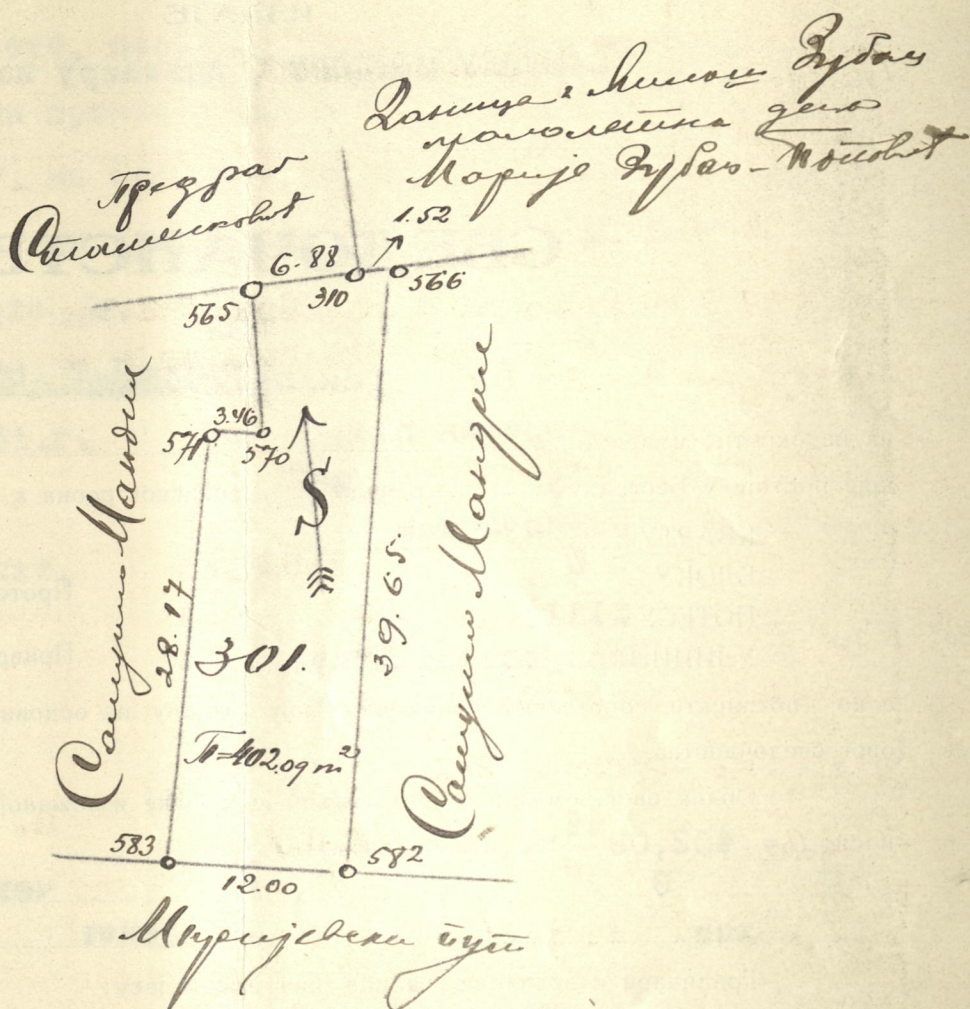 Даница и Милош Зубац
малолетна деца
Марије Зубац-Поповић
Предраг
Сташенковић
1.52
6.88
565
310
566
3.46
571
570
Мандил
28.17
39.65.
301.
П=402.09 m²
583
582
12.00
Миријевски пут